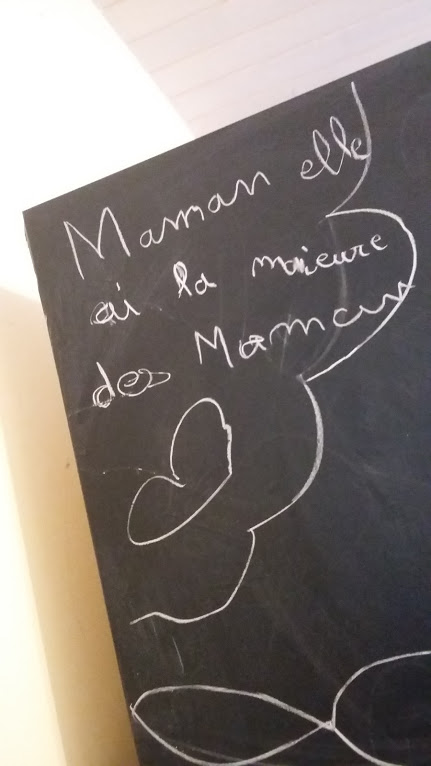 Maman elle
ai la maieure
des Maman